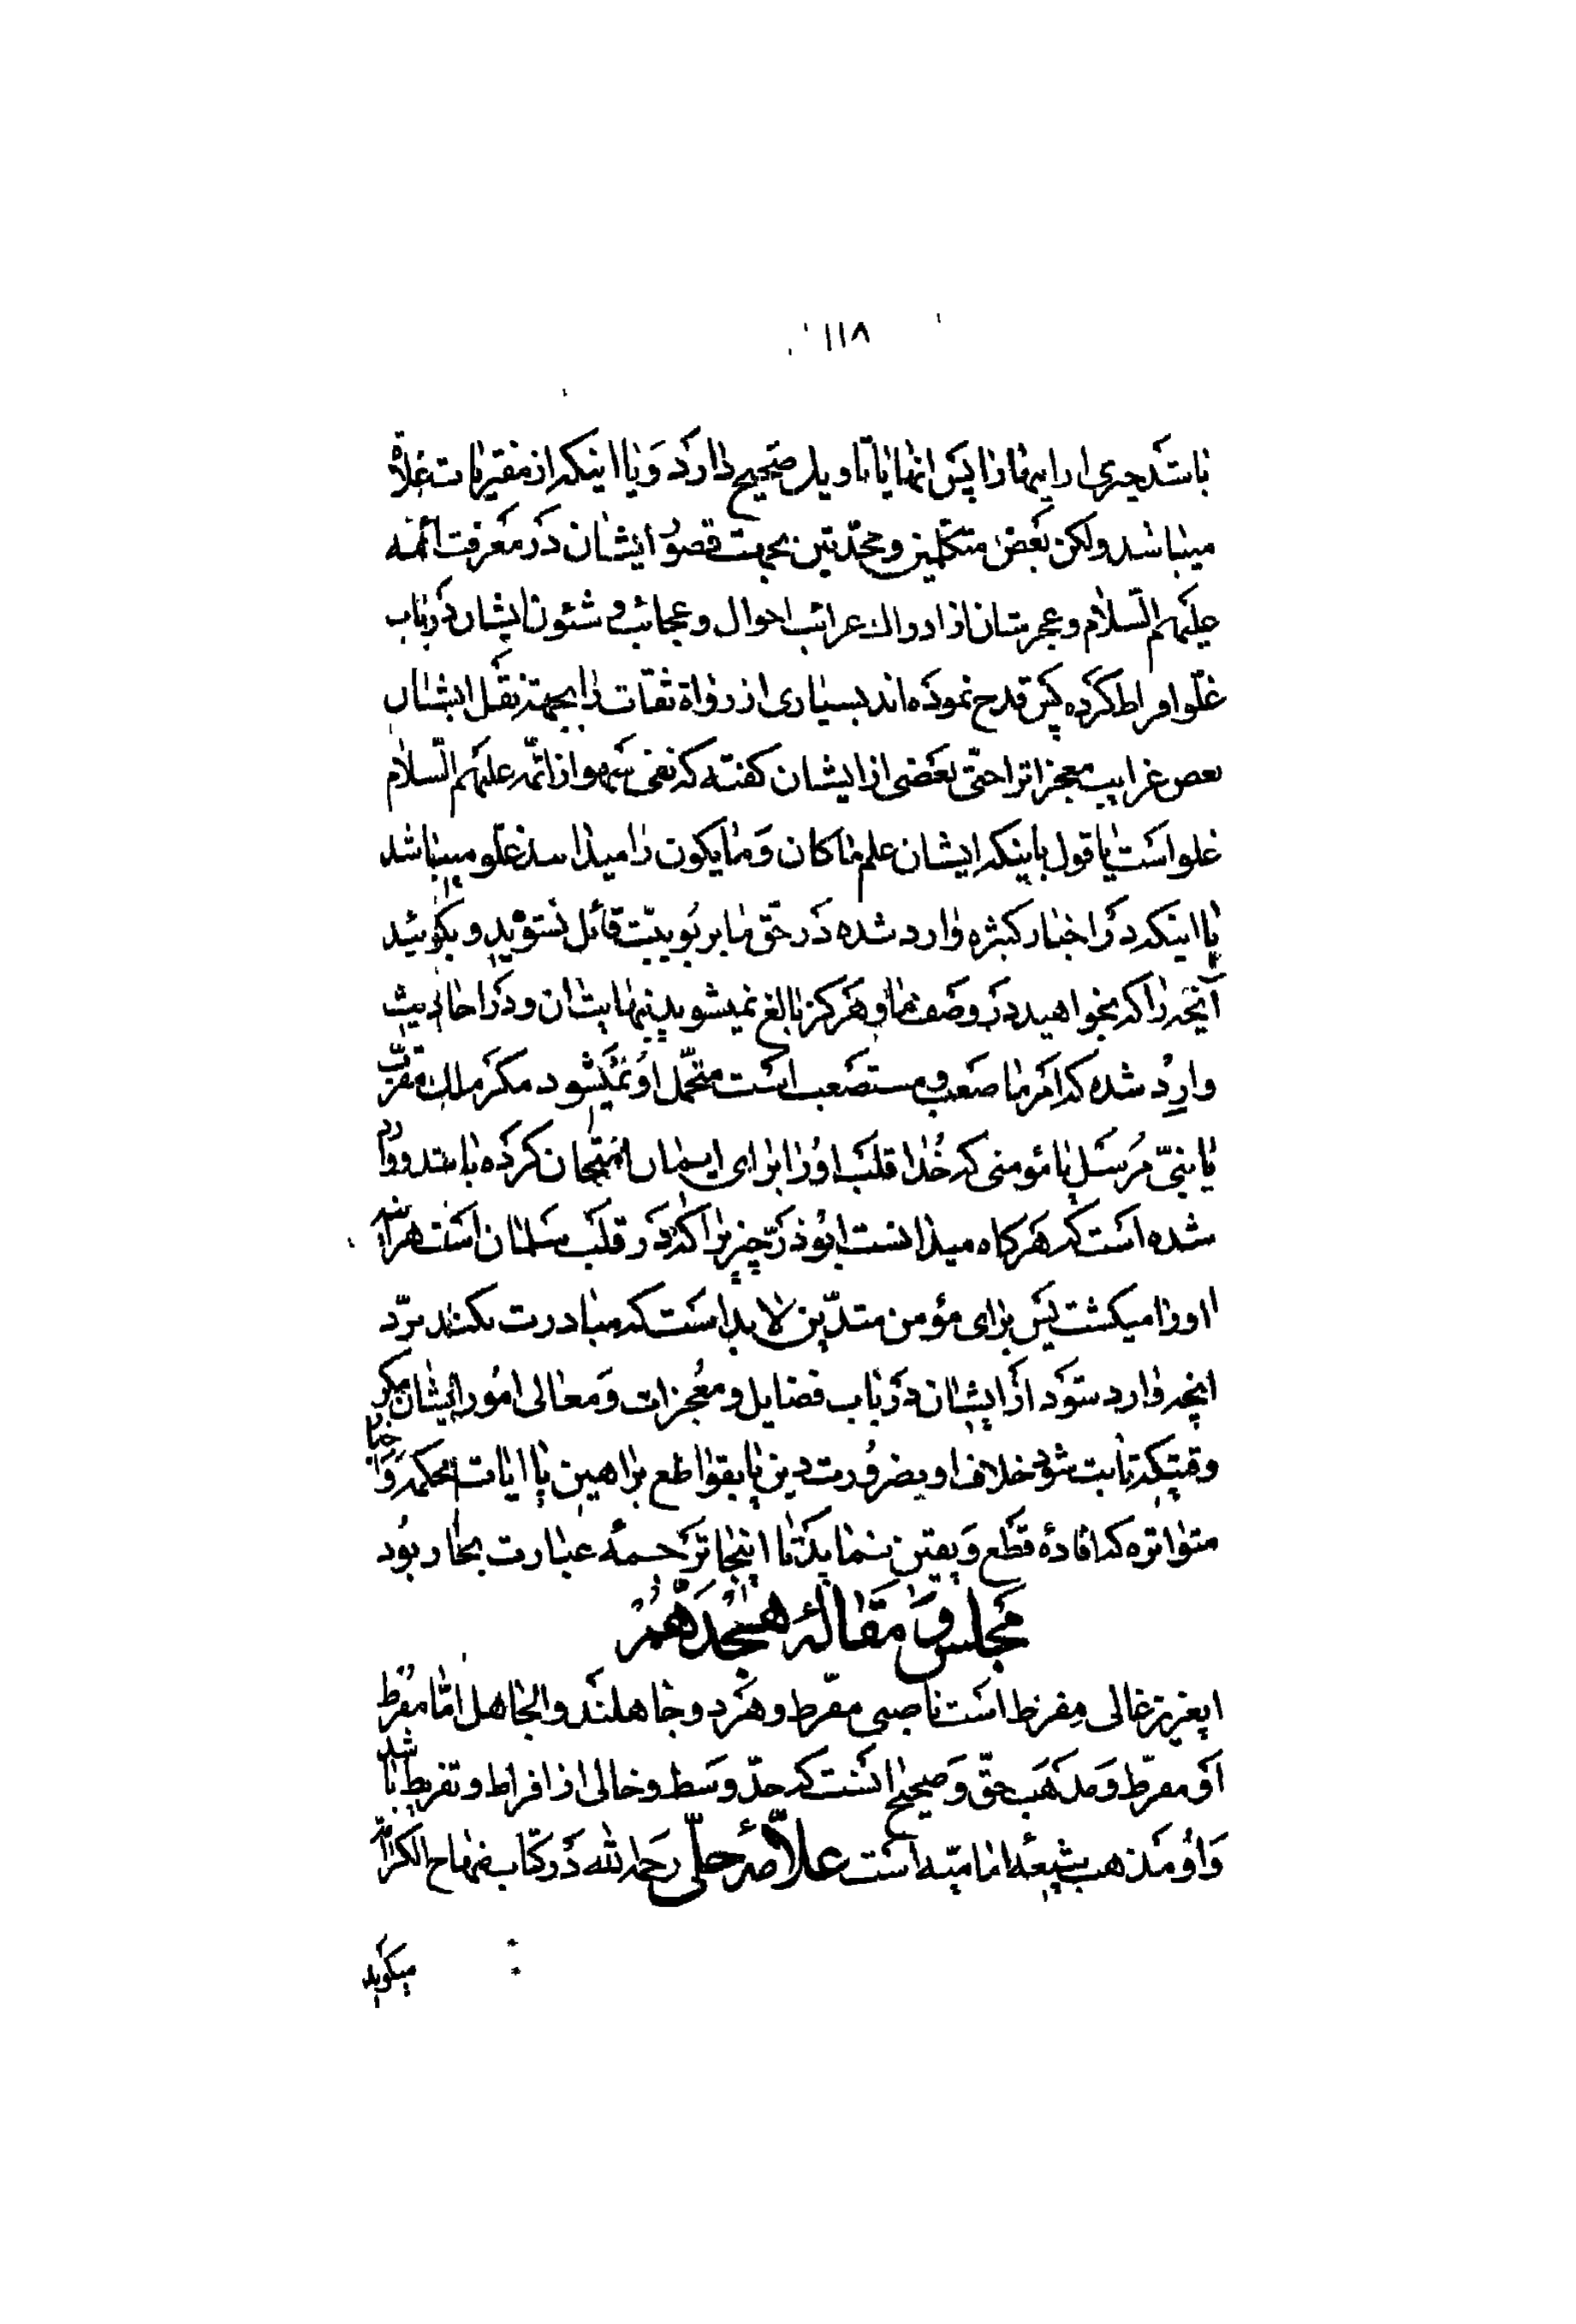 ۱۱۸
باشد چیزی از اینها را پس آنها یا تاویل صحیح دارد و یا اینکه از مفتریات غلاة
میباشد ولکن بعض متکلمین و محدّثین بجهت قصور ایشان در معرفت ائمه
علیهم السّلام و عجزشان از ادراك غرائب احوال و عجائب و شئون ایشان در باب
غلّو افراط کرده پس قدح نموده‌اند بسیاری از رواة ثقات را بجهة نقل ایشان
بعض غرایب معجزاترا حتّی بعضی از ایشان کفته که نفی سهو از ائمّه علیهم السّلام
غلو است یا قول باینکه ایشان علم ما کان وَ ما یکون را میدانند غلّو میباشد
با اینکه در اخبار کثیره وارد شده در حق ما بربوبیّت قائل نشوید و بکوئید
آنچه را که بخواهید در وصف ما و هرکز بالغ نمیشوید بنهایتان و در احادیث
وارد شده که امر ما صعب و مستصعب است متحمّل او نمیشود مکر ملك مقرّب
یا نبیّ مرسل یا مؤمنی که خدا قلب او را برای ایمان امتحان کرده باشد و وارد
شده است که هرکاه میدانست ابوذر چیزیرا که در قلب سلمان است هراینه
اورا میکشت پس برای مؤمن متدیّن لابد است که مبادرت نکند بردّ
انچه وارد شود از ایشان در باب فضایل و معجزات وَ معالی امور ایشان مکر
وقتیکه ثابت شود خلاف او بضرورت دین یا بقواطع براهین یا ایات محکمه وَ اخبار
متواتره که افادهٔ قطع وَ یقین بنماید تا اینجا ترجمهٔ عبارت بحار بود
مجلس و مقالهٔ هیجدهم
ایعزیز غالی مفرط است ناصبی مفرّط و هر دو جاهلند و الجاهل امّا مفرط
اَو مفرّط وَ مذهب حقّ وَ صحیح انست که حدّ وسط و خالی از افراط و تفریط باشد
وَ او مذهب شیعهٔ امامیّه است علاّمهٔ حلّی رحمه الله در کتاب منهاج الکرامه
میکوید